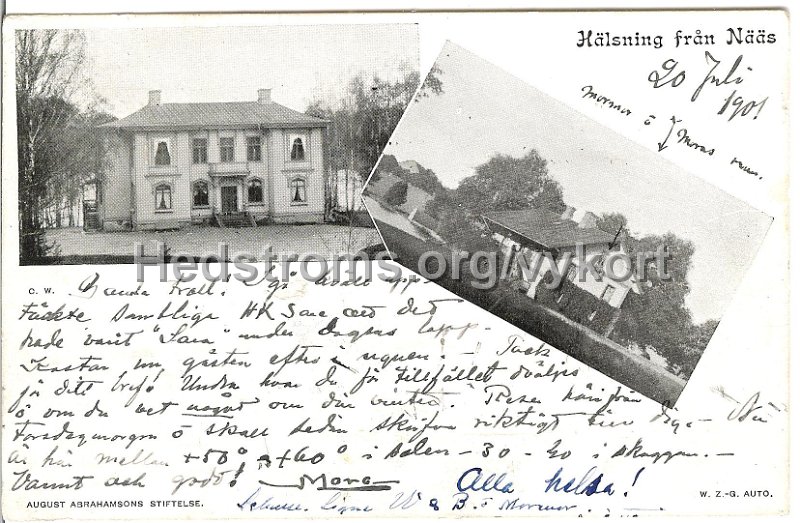 Hälsning från Nääs
20 Juli
1901
Mormor o Moras rum.
Hedstroms.org/vykort
C. W.
Troll! i går kväll upp-
täckte samtliga det
hade varit "Sara" under dagens lopp -
Kastar nu gästen efter i - Tack
för Ditt bref! Undra hvar du för tillfället dväljes
o om du vet något om din vinter. Reser härifrån
Torsdagmorgon o skall sedan skrifva riktigt - Nu
är här mellan +50° a +60° i solen - 30 - 20 i skuggan. -
Varmt och godt! - Mora -
Alla helsa!
Signe W a B o Mormor.
AUGUST ABRAHAMSONS STIFTELSE.
W. Z.-G. AUTO.